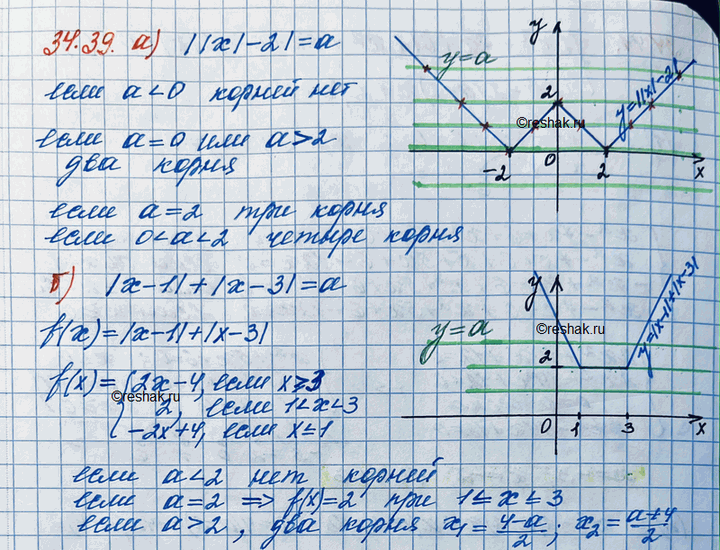 34.39. а) ||x|-2|=a
если a<0 корней нет
если a=0 или a>2
два корня
если a=2 три корня
если 0<a<2 четыре корня
y
y=a
2
y=||x|-2|
©reshak.ru
-2 0 2 x
б) |x-1|+|x-3|=a
f(x)=|x-1|+|x-3|
f(x)={2x-4, если x≥3
©reshak.ru
2, если 1<x<3
-2x+4, если x≤1
y
y=a
©reshak.ru
y=|x-1|+|x-3|
2
0 1 3 x
если a<2 нет корней
если a=2 => f(x)=2 при 1≤x≤3
если a>2, два корня x₁=(4-a)/2; x₂=(a+4)/2